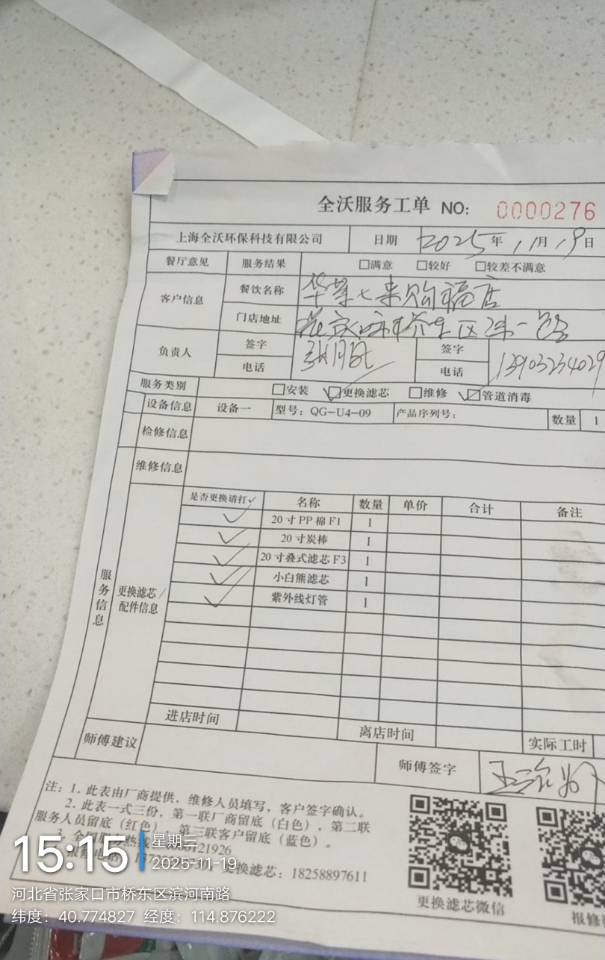 全沃服务工单 NO: 0000276
上海全沃环保科技有限公司 日期 2025年 11月 19日
餐厅意见 服务结果 □满意 □较好 □较差不满意
客户信息 餐饮名称
门店地址
负责人 签字 签字
电话 电话
服务类别 □安装 ☑更换滤芯 □维修 ☑管道消毒
设备信息 设备一 型号: QG-U4-09 产品序列号: 数量 1
检修信息
维修信息
服务信息
更换滤芯/配件信息
是否更换请打✓ 名称 数量 单价 合计 备注
✓ 20寸PP棉F1 1
✓ 20寸炭棒 1
✓ 20寸叠式滤芯F3 1
✓ 小白熊滤芯 1
✓ 紫外线灯管 1
进店时间 离店时间 实际工时
师傅建议 师傅签字
注: 1. 此表由厂商提供, 维修人员填写, 客户签字确认。
2. 此表一式三份, 第一联厂商留底 (白色), 第二联
服务人员留底 (红色), 第三联客户留底 (蓝色)。
更换滤芯: 18258897611
更换滤芯微信
15:15 星期三
2025-11-19
河北省张家口市桥东区滨河南路
纬度: 40.774827 经度: 114.876222